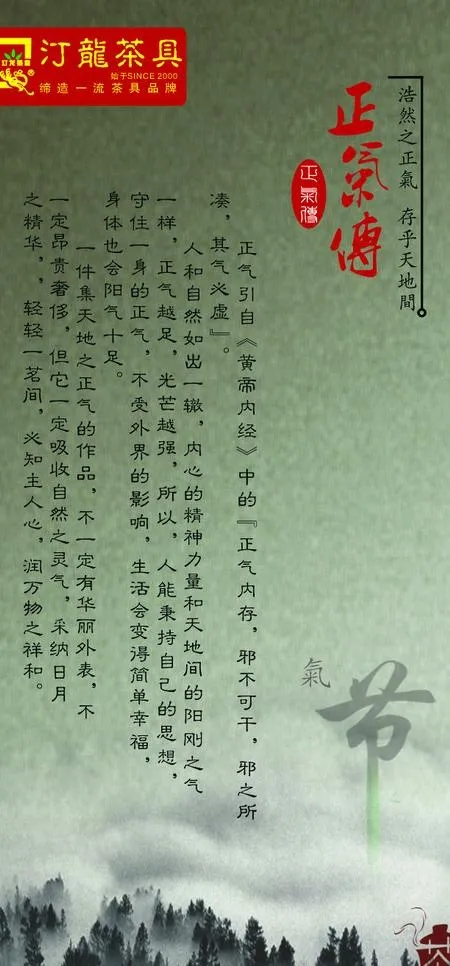 汀龍茶具
始于SINCE 2000
缔造一流茶具品牌
浩然之正氣 存乎天地間
正氣傳
正氣傳
正气引自《黄帝内经》中的『正气内存，邪不可干，邪之所
凑，其气必虚』。
人和自然如出一辙，内心的精神力量和天地间的阳刚之气
一样，正气越足，光芒越强，所以，人能秉持自己的思想，
守住一身的正气，不受外界的影响，生活会变得简单幸福，
身体也会阳气十足。
一件集天地之正气的作品，不一定有华丽外表，不
一定昂贵奢侈，但它一定吸收自然之灵气，采纳日月
之精华，，轻轻一茗间，必知主人心，润万物之祥和。
氣
节
茶